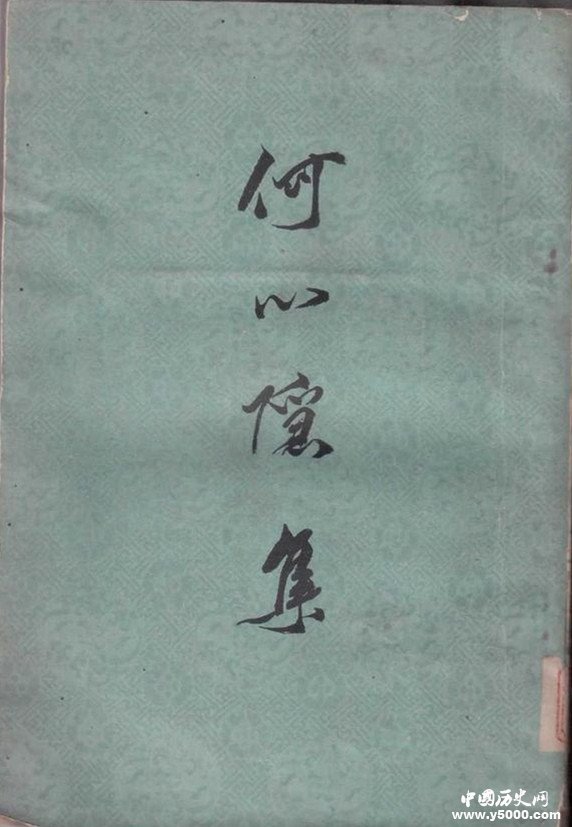 何心隱集
中國历史网
www.y5000.com